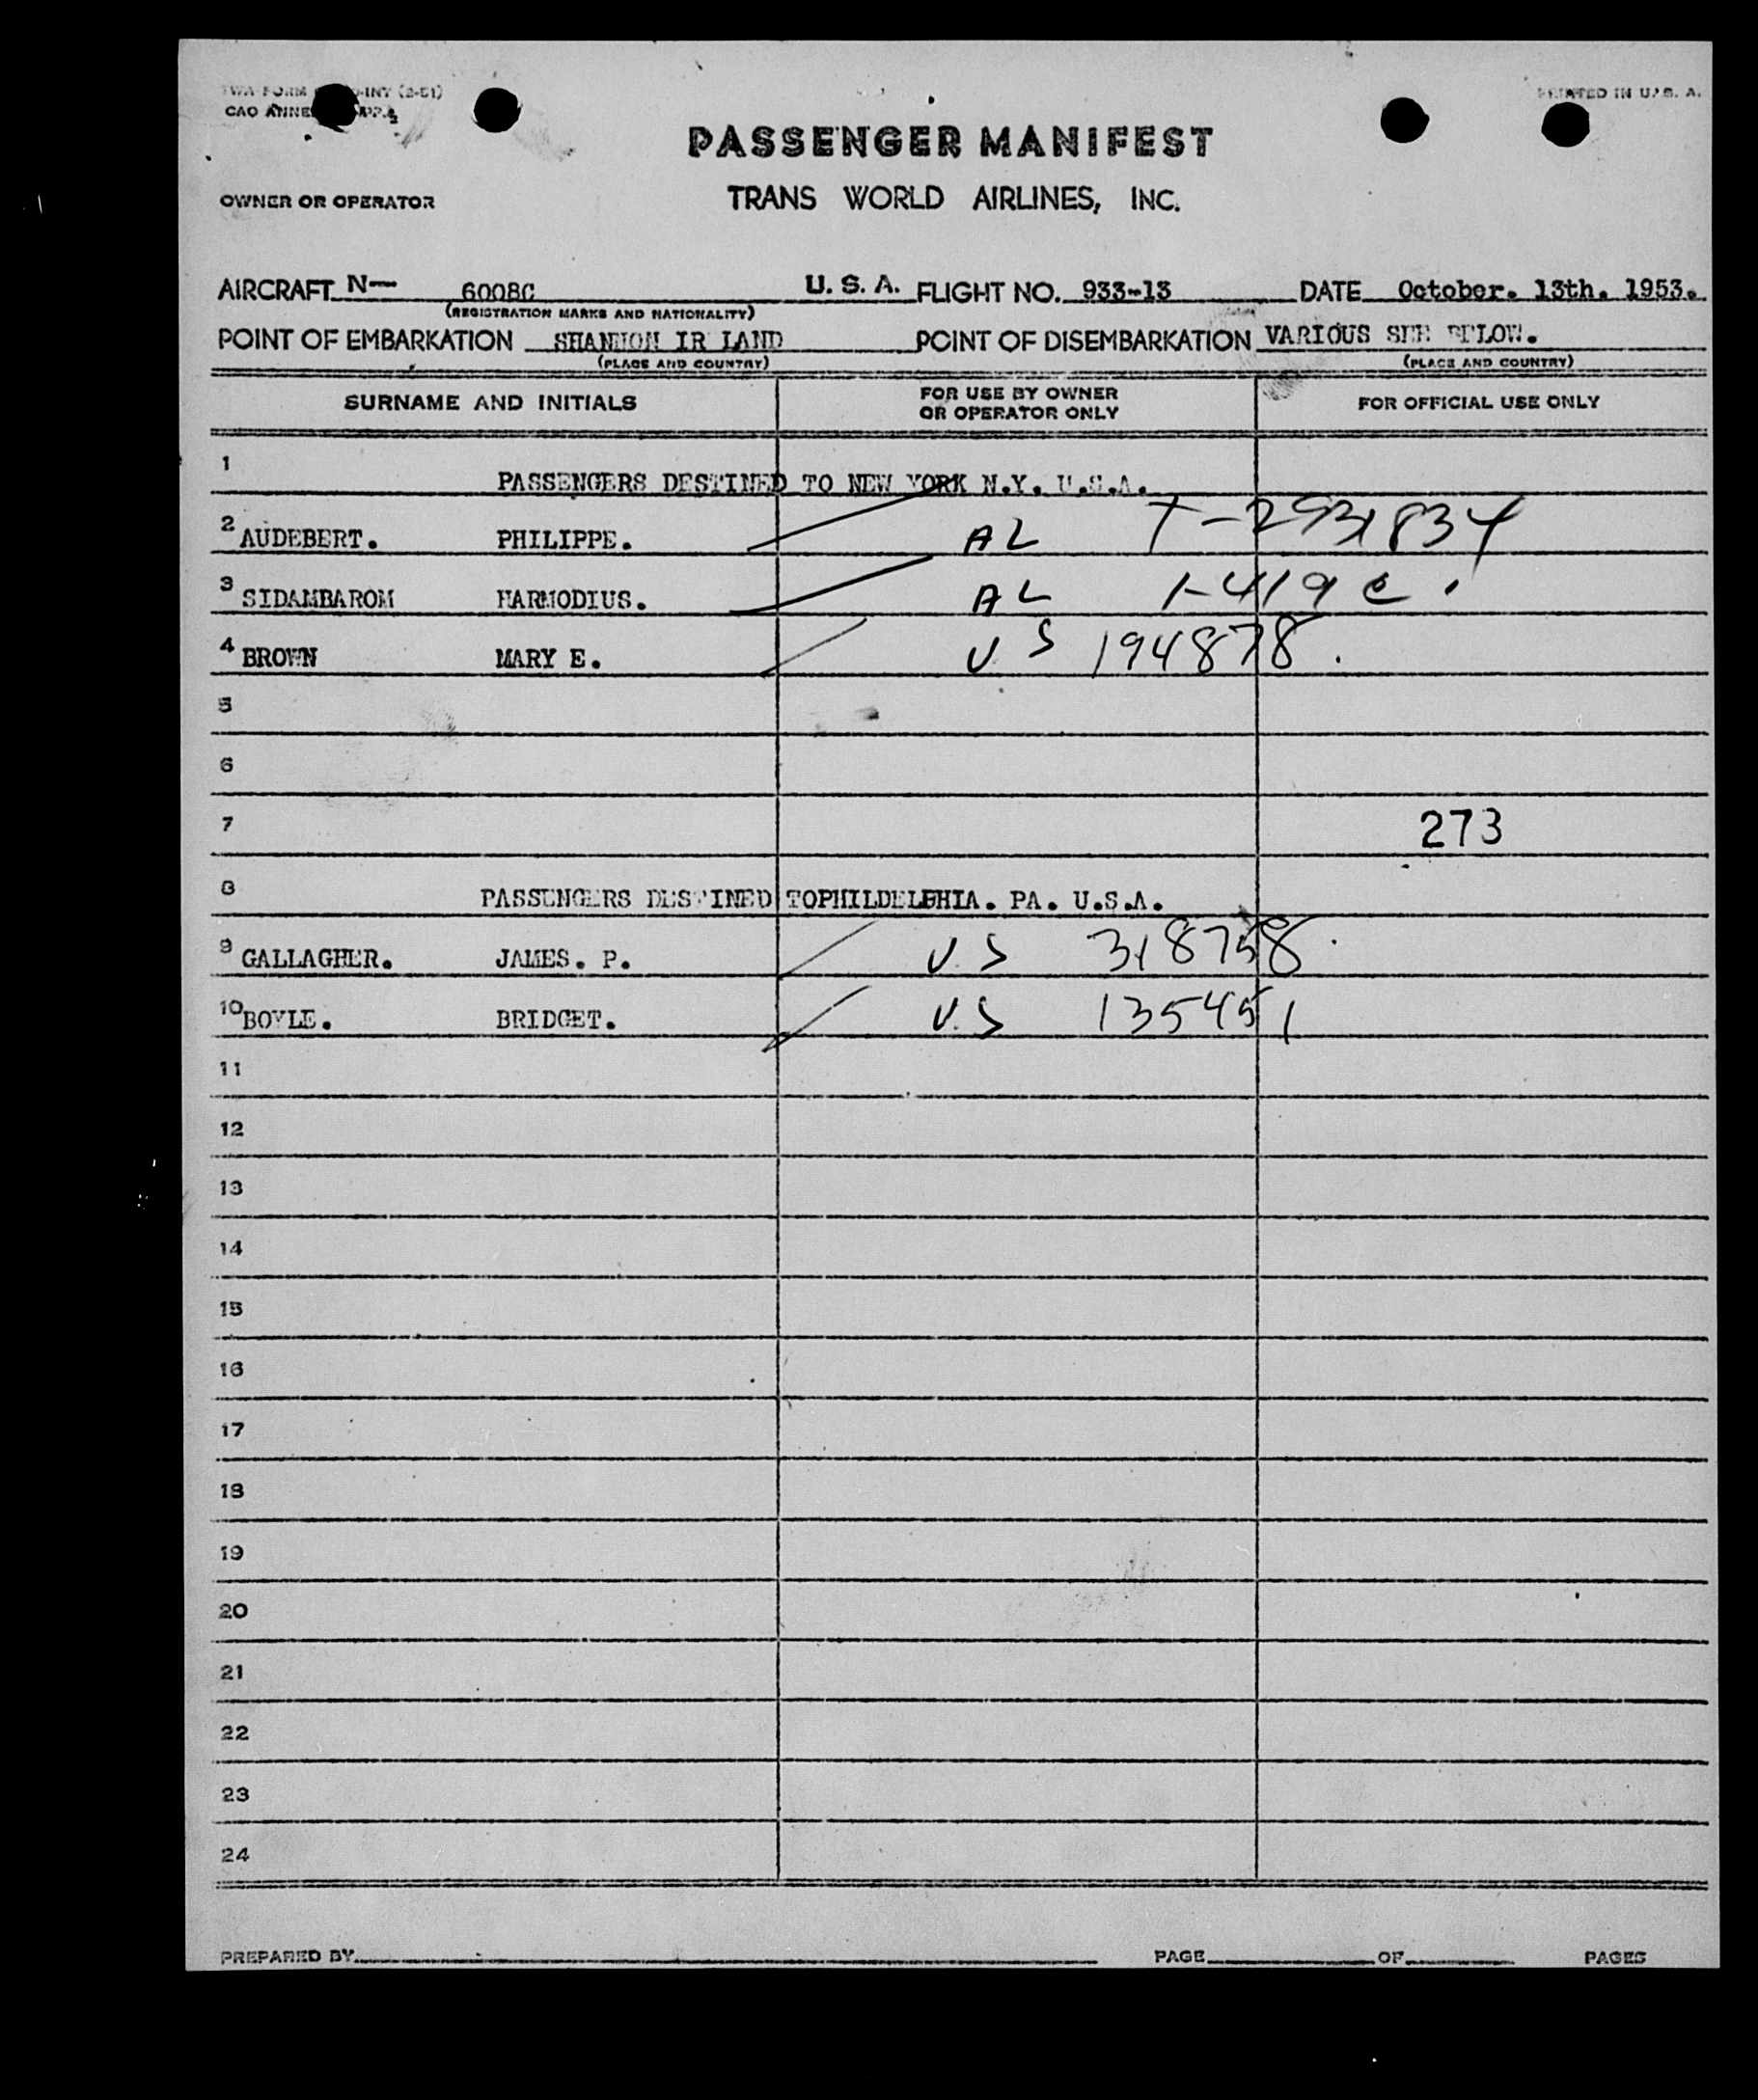 TWA FORM -INT (2-51)
PRINTED IN U. S. A.
CAO ANNE APP.
PASSENGER MANIFEST
OWNER OR OPERATOR TRANS WORLD AIRLINES, INC.
AIRCRAFT N— 6008C U. S. A. FLIGHT NO. 933-13 DATE October. 13th. 1953.
(REGISTRATION MARKS AND NATIONALITY)
POINT OF EMBARKATION SHANNON IR LAND POINT OF DISEMBARKATION VARIOUS SEE BELOW.
(PLACE AND COUNTRY) (PLACE AND COUNTRY)
SURNAME AND INITIALS FOR USE BY OWNER OR OPERATOR ONLY FOR OFFICIAL USE ONLY
1 PASSENGERS DESTINED TO NEW YORK N.Y. U.S.A.
2 AUDEBERT. PHILIPPE. AL T-
3 SIDAMBAROM HARMODIUS. AL
4 BROWN MARY E. US 194878.
5
6
7 273
8 PASSENGERS DESTINED TOPHILDELPHIA. PA. U.S.A.
9 GALLAGHER. JAMES. P. U.S 318758
10 BOYLE. BRIDGET. U.S 135451
11
12
13
14
15
16
17
18
19
20
21
22
23
24
PREPARED BY PAGE OF PAGES